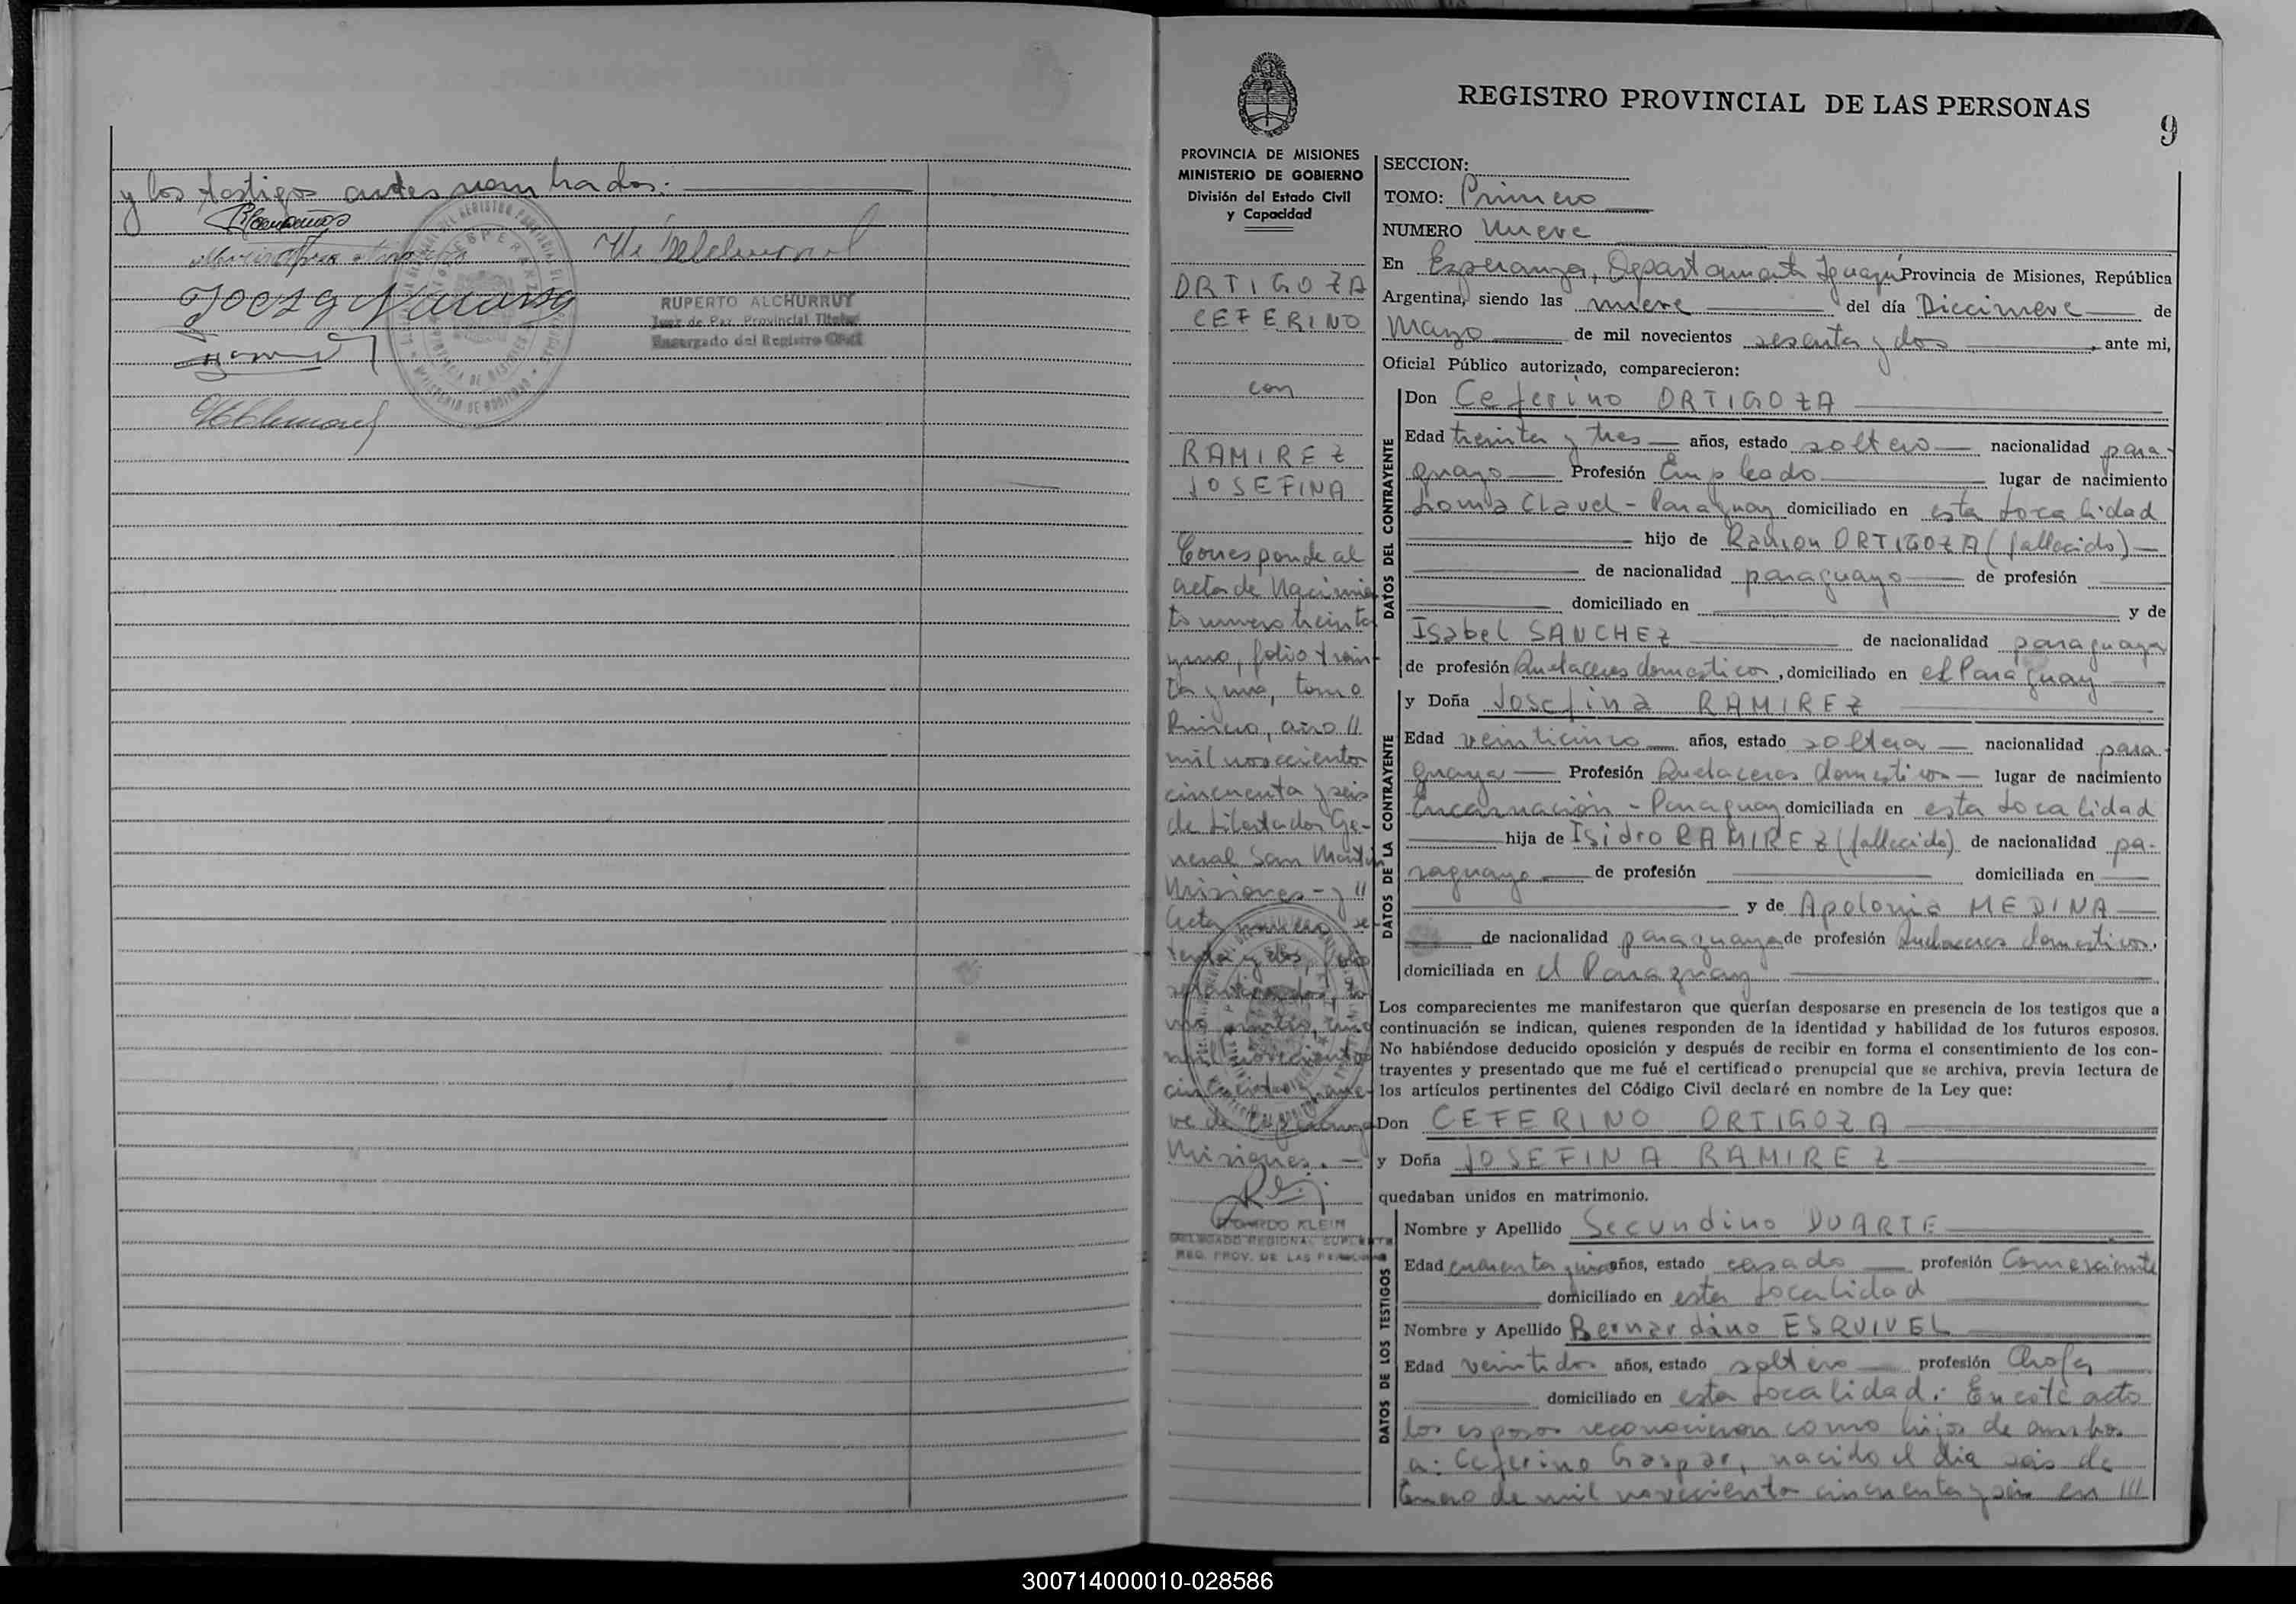 y los testigos antes nombrados.
RUPERTO ALCHURRUY
Juez de Paz Provincial Titular
Encargado del Registro Civil
REGISTRO PROVINCIAL DE LAS PERSONAS
9
PROVINCIA DE MISIONES
MINISTERIO DE GOBIERNO
División del Estado Civil
y Capacidad
ORTIGOZA
CEFERINO
con
RAMIREZ
JOSEFINA
Corresponde al
acta de Nacimien
to numero treinta
y uno, folio trein-
ta y uno, tomo
Primero, año //
mil novecientos
cincuenta y seis
de Libertador Ge-
neral San Martín
Misiones - y //
Acta número se
tenta y dos, folio
setenta y dos, to
mo
mil novecientos
cincuenta y nue-
ve de Esperanza
Misiones. -
DELEGADO REGIONAL SUPLENTE
REG. PROV. DE LAS PERSONAS
SECCION:
TOMO: Primero
NUMERO Nueve
En Esperanza, Departamento Iguazú Provincia de Misiones, República
Argentina, siendo las nueve del día Diecinueve de
Marzo de mil novecientos sesenta y dos, ante mi,
Oficial Público autorizado, comparecieron:
DATOS DEL CONTRAYENTE
Don Ceferino ORTIGOZA
Edad treinta y tres años, estado soltero nacionalidad para-
guayo Profesión Empleado lugar de nacimiento
Loma Clavel - Paraguay domiciliado en esta Localidad
hijo de Ramon ORTIGOZA (fallecido)
de nacionalidad paraguayo de profesión
domiciliado en y de
Isabel SANCHEZ de nacionalidad paraguaya
de profesión Quehaceres domesticos, domiciliado en el Paraguay
DATOS DE LA CONTRAYENTE
y Doña Josefina RAMIREZ
Edad veinticinco años, estado soltera nacionalidad para-
guaya Profesión Quehaceres domesticos lugar de nacimiento
Encarnación - Paraguay domiciliada en esta Localidad
hija de Isidro RAMIREZ (fallecido) de nacionalidad pa-
raguayo de profesión domiciliada en
y de Apolonia MEDINA
de nacionalidad paraguaya de profesión Quehaceres domesticos.
domiciliada en el Paraguay
Los comparecientes me manifestaron que querían desposarse en presencia de los testigos que a
continuación se indican, quienes responden de la identidad y habilidad de los futuros esposos.
No habiéndose deducido oposición y después de recibir en forma el consentimiento de los con-
trayentes y presentado que me fué el certificado prenupcial que se archiva, previa lectura de
los artículos pertinentes del Código Civil declaré en nombre de la Ley que:
Don CEFERINO ORTIGOZA
y Doña JOSEFINA RAMIREZ
quedaban unidos en matrimonio.
DATOS DE LOS TESTIGOS
Nombre y Apellido Secundino DUARTE
Edad cuarenta y uno años, estado casado profesión Comerciante
domiciliado en esta Localidad
Nombre y Apellido Bernardino ESQUIVEL
Edad veintidos años, estado soltero profesión Chofer
domiciliado en esta Localidad. En este acto
los esposos reconocieron como hijos de ambos
a: Ceferino Gaspar, nacido el dia seis de
Enero de mil novecientos cincuenta y seis en ///
300714000010-028586